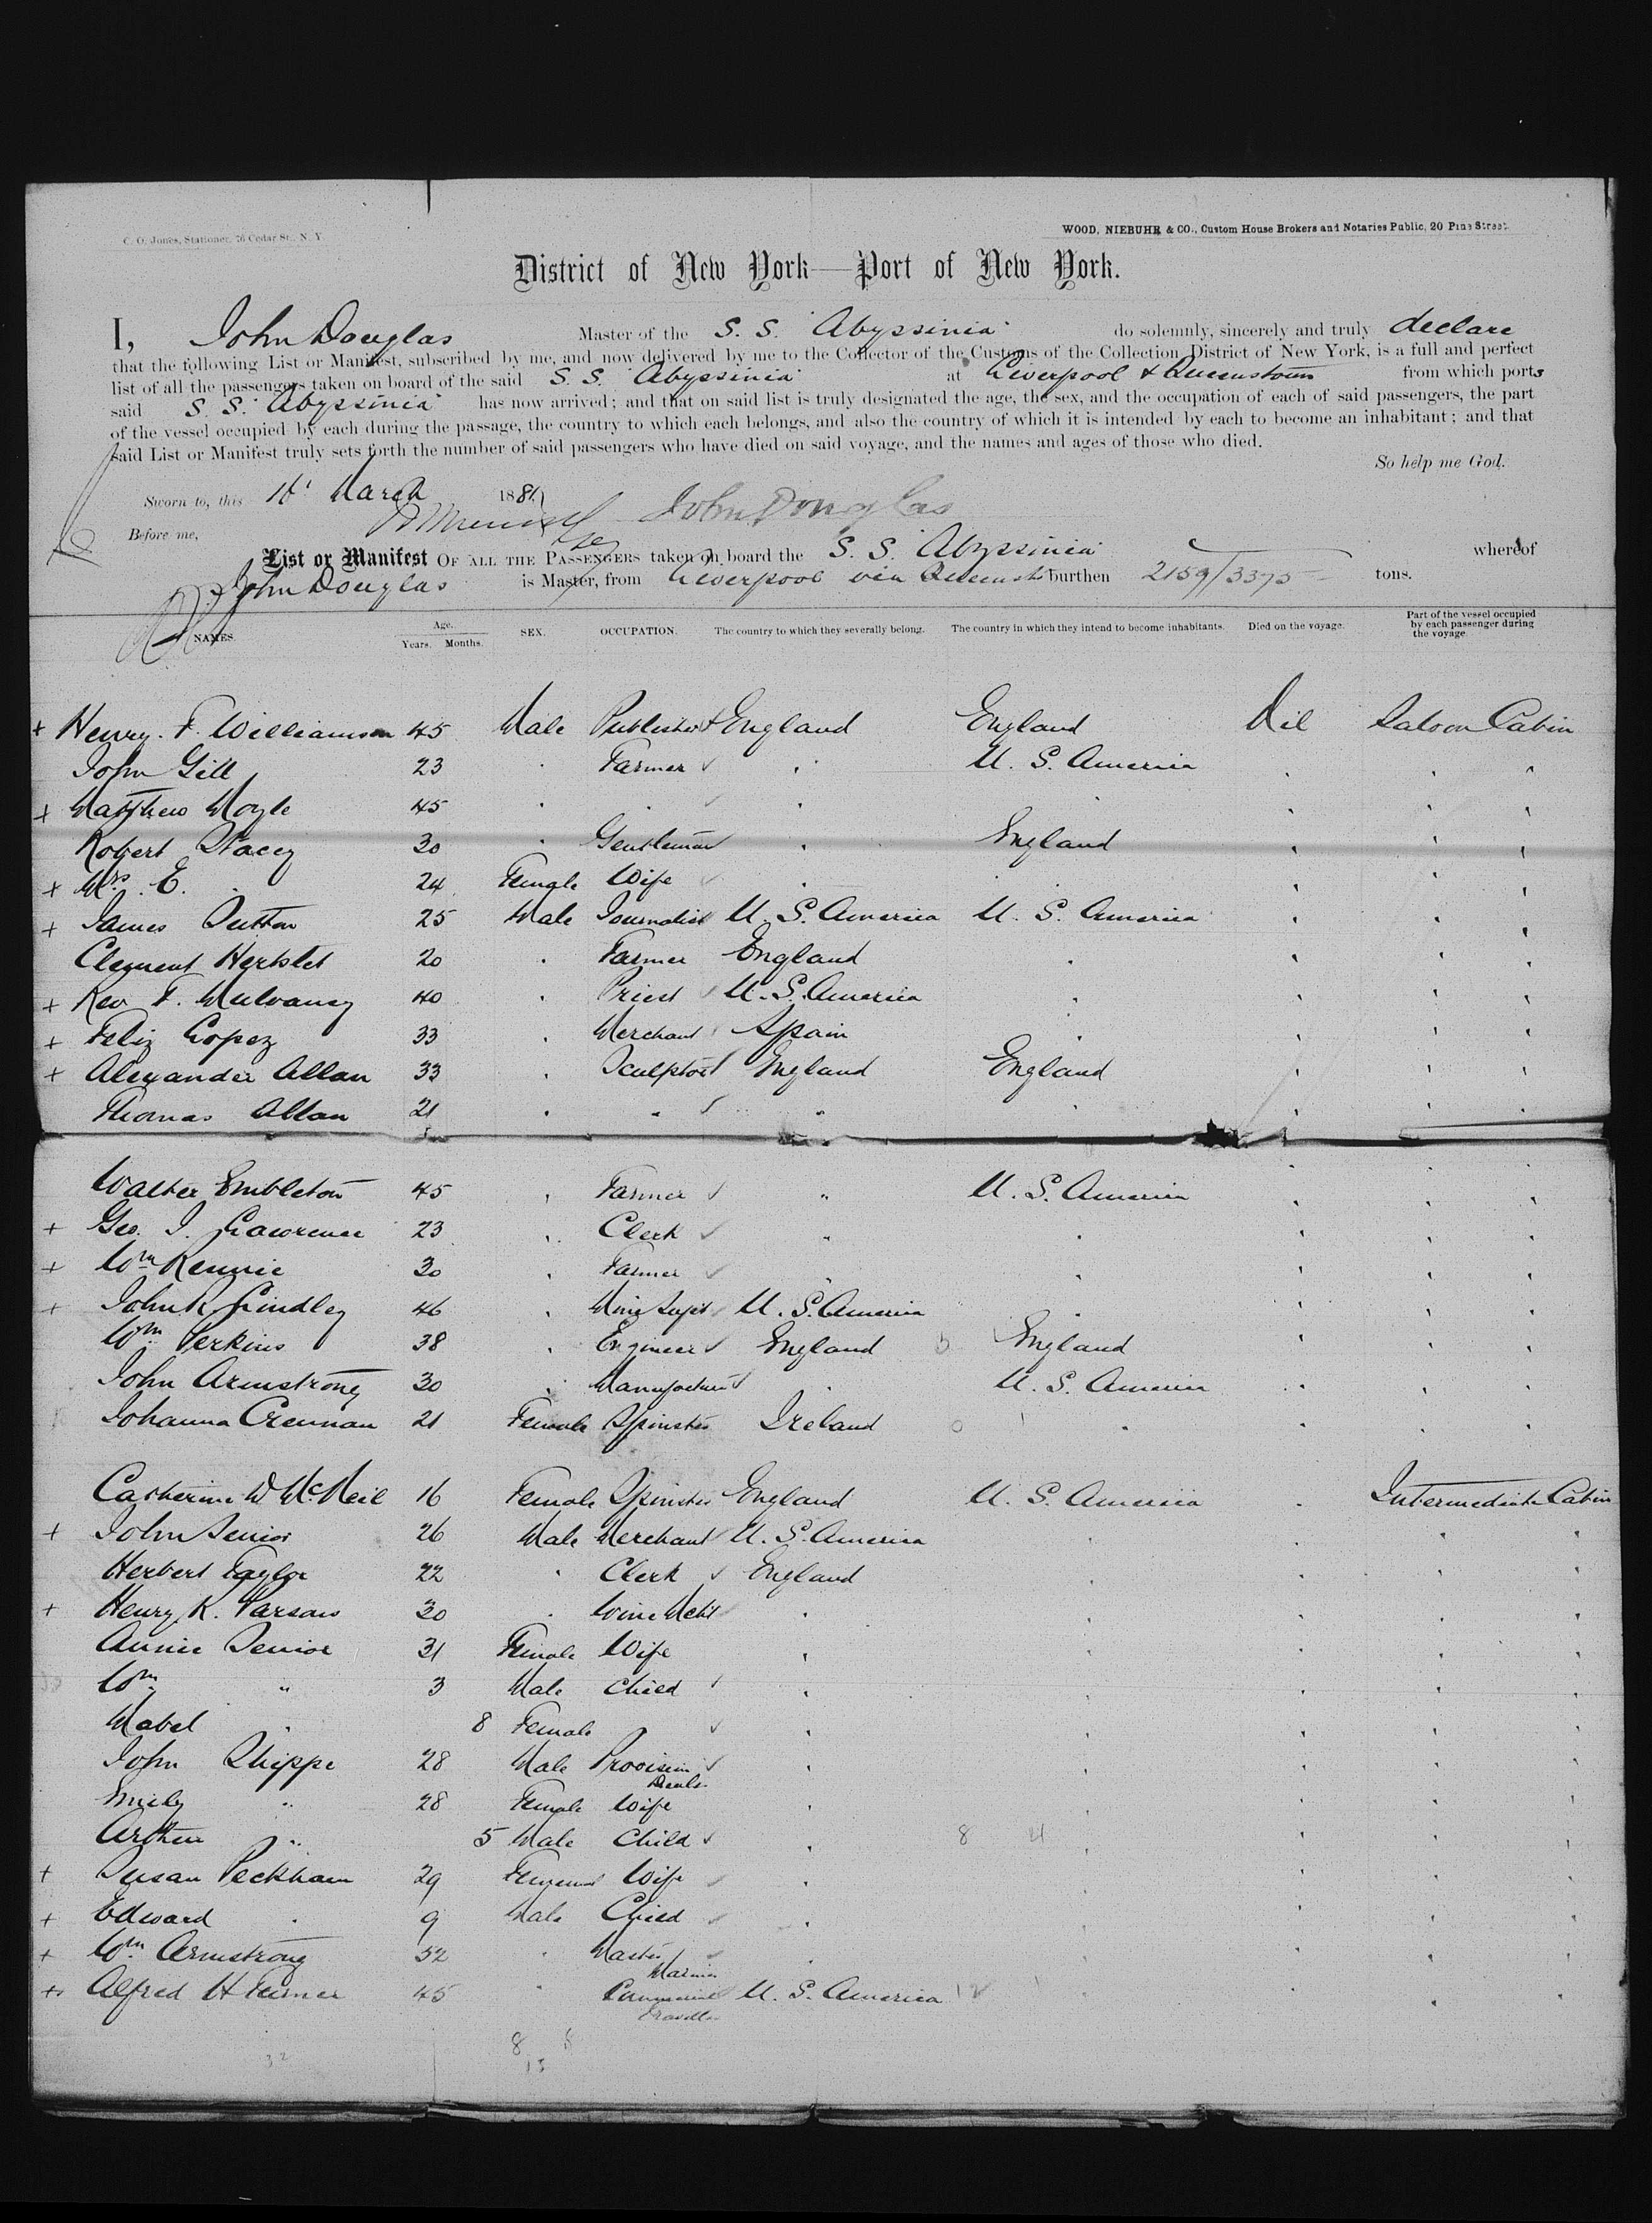 C. O. Jones, Stationer, 76 Cedar St., N. Y.
WOOD, NIEBUHR & CO., Custom House Brokers and Notaries Public, 20 Pine Street.
District of New York—Port of New York.
I, John Douglas Master of the S. S. "Abyssinia" do solemnly, sincerely and truly declare
that the following List or Manifest, subscribed by me, and now delivered by me to the Collector of the Customs of the Collection District of New York, is a full and perfect
list of all the passengers taken on board of the said S. S. "Abyssinia" at Liverpool & Queenstown from which ports
said S. S. "Abyssinia" has now arrived; and that on said list is truly designated the age, the sex, and the occupation of each of said passengers, the part
of the vessel occupied by each during the passage, the country to which each belongs, and also the country of which it is intended by each to become an inhabitant; and that
said List or Manifest truly sets forth the number of said passengers who have died on said voyage, and the names and ages of those who died.
So help me God.
Sworn to, this March 1881 John Douglas
Before me,
List or Manifest OF ALL THE PASSENGERS taken on board the S. S. Abyssinia whereof
John Douglas is Master, from Liverpool via Queenst burthen 2159/3375 tons.
NAMES. Age. Years. Months. SEX. OCCUPATION. The country to which they severally belong. The country in which they intend to become inhabitants. Died on the voyage. Part of the vessel occupied by each passenger during the voyage.
+ Henry. F. Williamson 45 Male Publisher England England Nil Saloon Cabin
John Gill 23 " Farmer " U. S. America " " "
+ Matthew Moyle 45 " " " " " " "
Robert Stacey 30 " Gentleman " England " " "
+ Mrs. E. " 24 Female Wife " " " " "
+ James Sutton 25 Male Journalist U. S. America U. S. America " " "
Clement Hertslet 20 " Farmer England " " " "
+ Rev F. Mulvaney 40 " Priest U. S. America " " " "
+ Feliz Lopez 33 " Merchant Spain " " " "
+ Alexander Allan 33 " Sculptor England England " " "
Thomas Allan 21 " " " " " " "
Walter Embleton 45 " Farmer " U. S. America " " "
+ Geo. J. Lawrence 23 " Clerk " " " " "
+ Wm Rennie 30 " Farmer " " " " "
+ John R. Lindley 46 " Mine Supt U. S. America " " " "
Wm Perkins 38 " Engineer England England " " "
John Armstrong 30 " Manufacturer " U. S. America " " "
Johanna Crennan 21 Female Spinster Ireland " " " "
Catherine W McNeil 16 Female Spinster England U. S. America " Intermediate Cabin
+ John Senior 26 Male Merchant U. S. America " " " "
Herbert Taylor 22 " Clerk England " " " "
+ Henry K. Parsons 30 " Wine Mcht " " " " "
Annie Senior 31 Female Wife " " " " "
Wm " 3 Male Child " " " " "
Mabel " 8 Female " " " " "
John Shippe 28 Male Provision Dealer " " " " "
Emily " 28 Female Wife " " " " "
Arthur " 5 Male Child " " " " "
+ Susan Peckham 29 Female Wife " " " " "
+ Edward " 9 Male Child " " " " "
+ Wm Armstrong 52 " Master Mariner " " " " "
+ Alfred H 45 " Commercial Traveller U. S. America " " " "